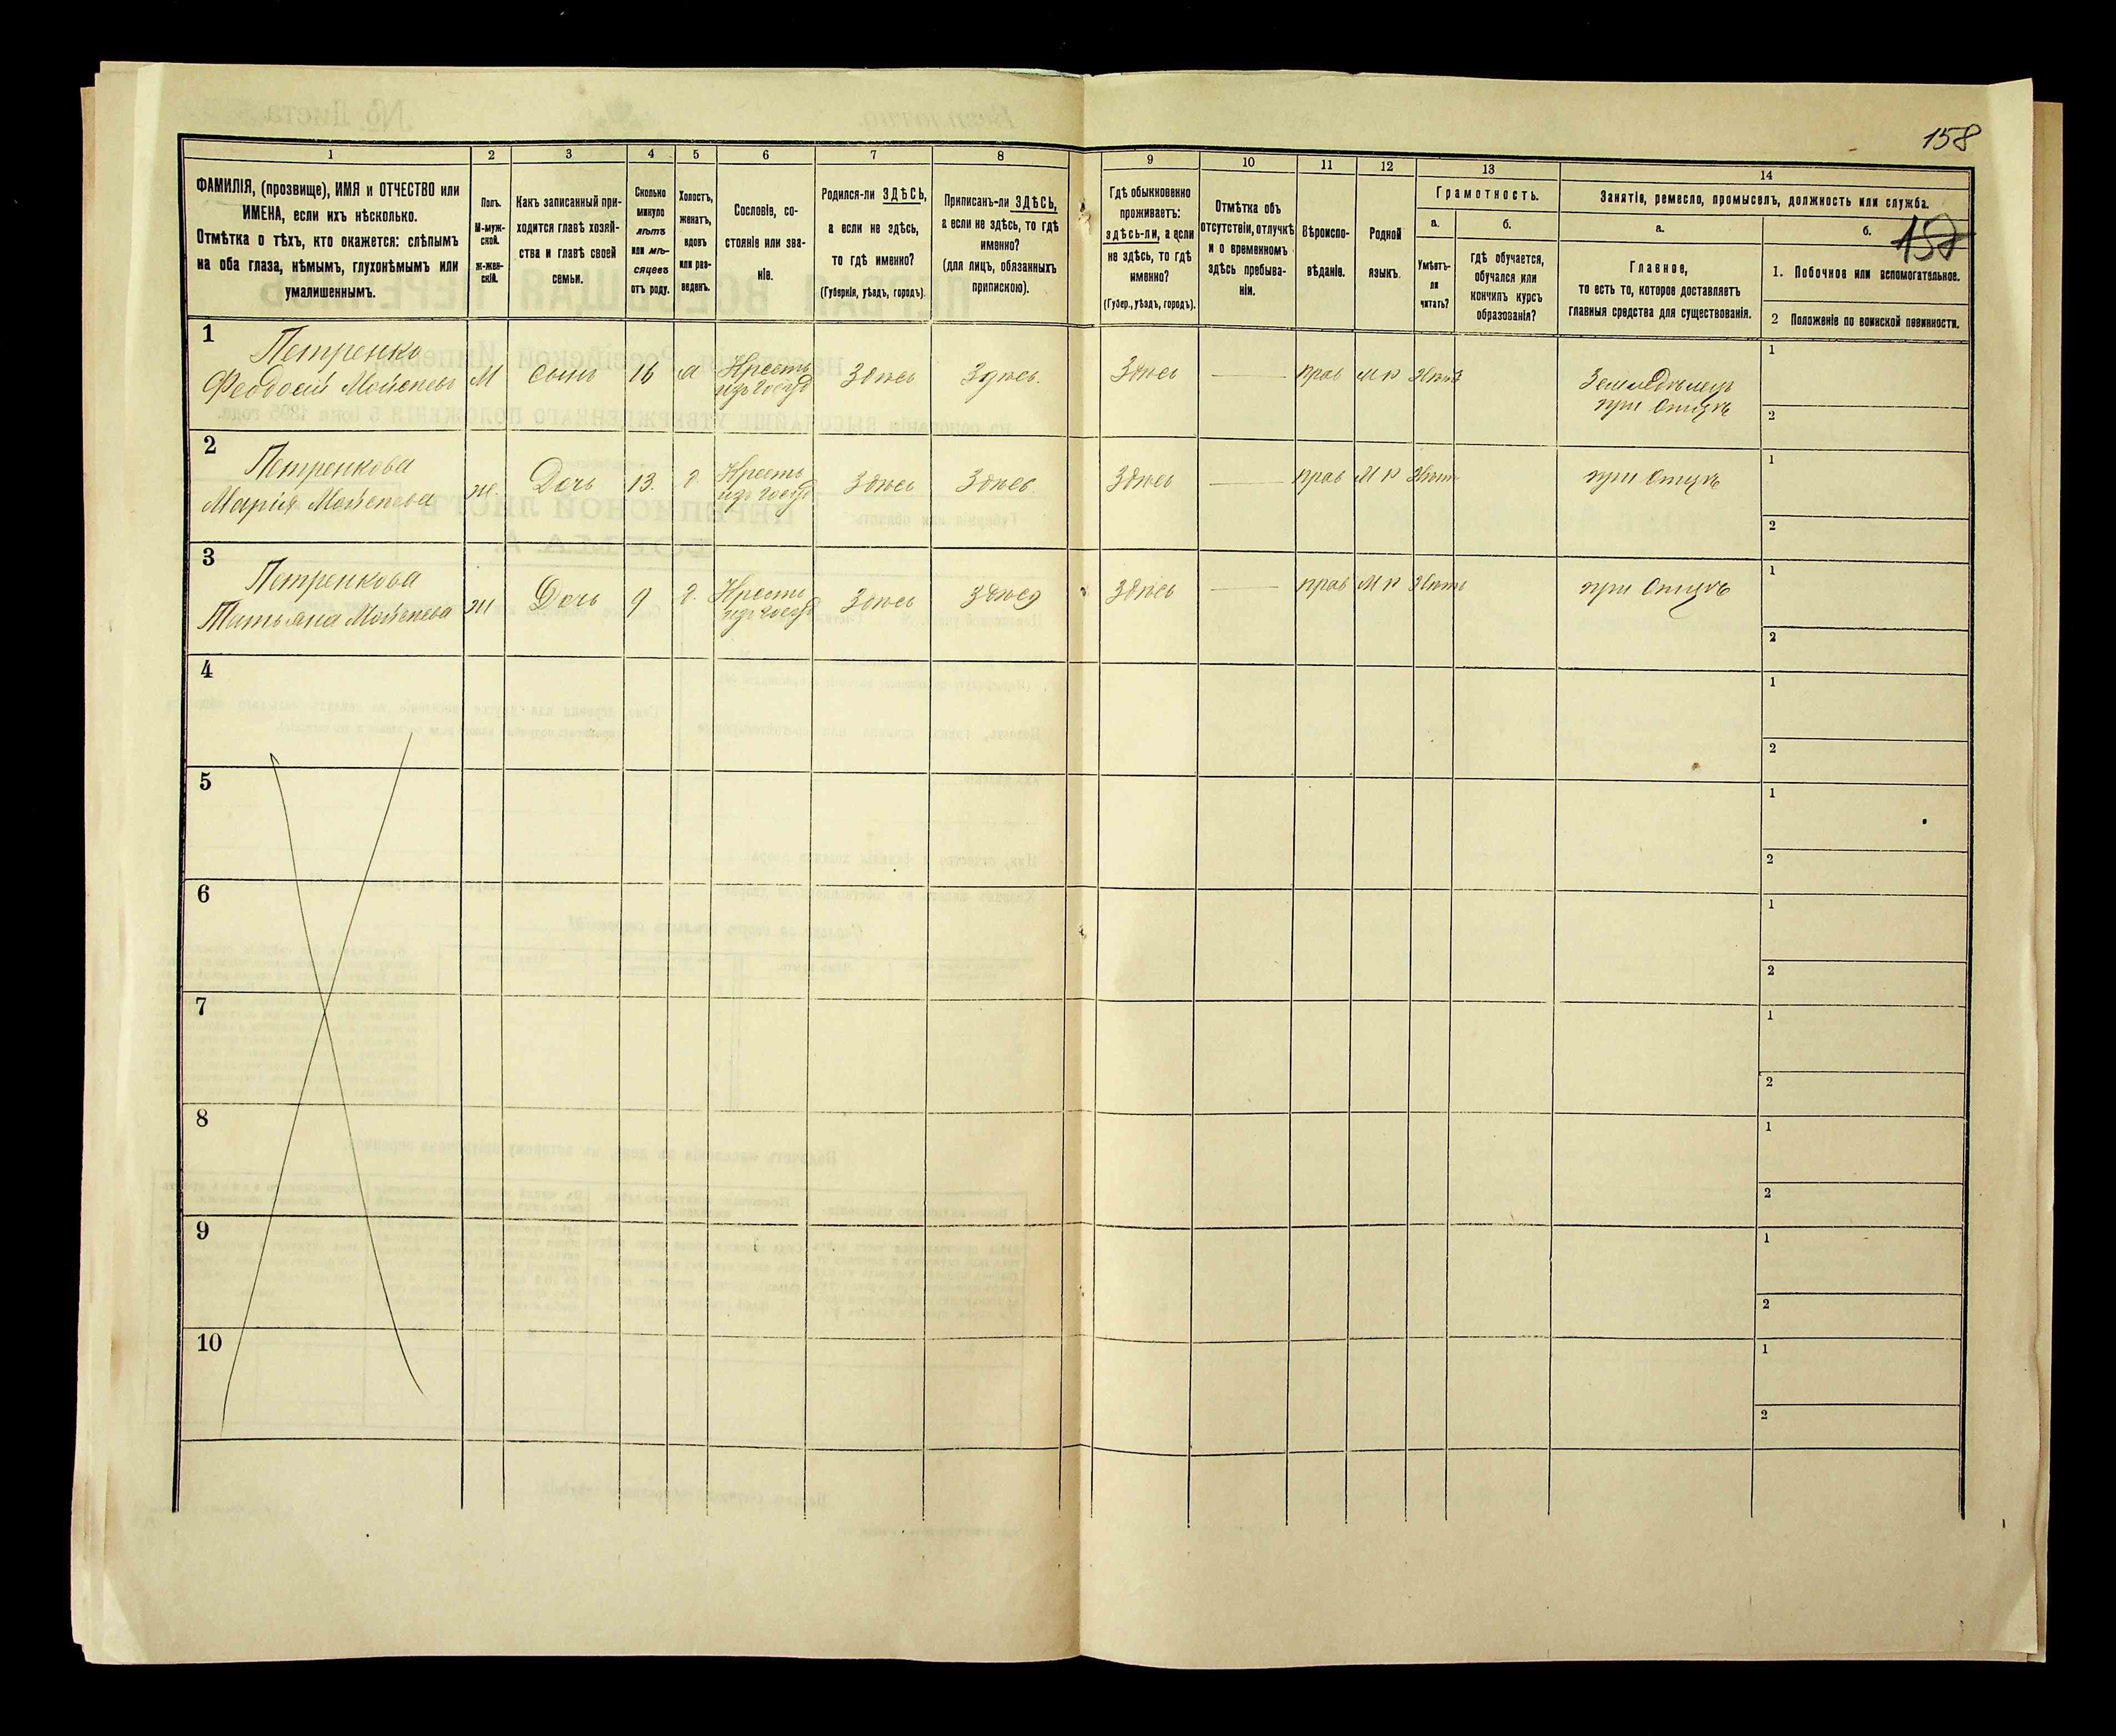 158
1 2 3 4 5 6 7 8 9 10 11 12 13 14
ФАМИЛІЯ, (прозвище), ИМЯ и ОТЧЕСТВО или
ИМЕНА, если ихъ нѣсколько.
Отмѣтка о тѣхъ, кто окажется: слѣпымъ
на оба глаза, нѣмымъ, глухонѣмымъ или
умалишеннымъ.
Полъ.
М-муж-
ской.
Ж-жен-
скій.
Какъ записанный при-
ходится главѣ хозяй-
ства и главѣ своей
семьи.
Сколько
минуло
лѣтъ
или мѣ-
сяцевъ
отъ роду.
Холостъ,
женатъ,
вдовъ
или раз-
веденъ.
Сословіе, со-
стояніе или зва-
ніе.
Родился-ли ЗДѢСЬ,
а если не здѣсь,
то гдѣ именно?
(Губернія, уѣздъ, городъ).
Приписанъ-ли ЗДѢСЬ,
а если не здѣсь, то гдѣ
именно?
(для лицъ, обязанныхъ
припискою).
Гдѣ обыкновенно
проживаетъ:
здѣсь-ли, а если
не здѣсь, то гдѣ
именно?
(Губер., уѣздъ, городъ).
Отмѣтка объ
отсутствіи, отлучкѣ
и о временномъ
здѣсь пребыва-
ніи.
Вѣроиспо-
вѣданіе.
Родной
языкъ.
Грамотность.
а.
Умѣетъ-
ли
читать?
б.
гдѣ обучается,
обучался или
кончилъ курсъ
образованія?
Занятіе, ремесло, промыселъ, должность или служба.
а.
Главное,
то есть то, которое доставляетъ
главныя средства для существованія.
б.
1. Побочное или вспомогательное.
2 Положеніе по воинской повинности.
1
Петренко
Феодосій Мойсеевъ М сынъ 16 Крестъ Здѣсь Здѣсь. Здѣсь прав М р
Земледѣлецъ
при отцѣ
1
2
2
Петренкова
Марія Мойсеева ж. Дочь 13. Крестъ Здѣсь Здѣсь Здѣсь прав М р при отцѣ
1
2
3
Петренкова
Татьяна Мойсеева ж Дочь 9 Крестъ Здѣсь Здѣсь Здѣсь прав М р при отцѣ
1
2
4
1
2
5
1
2
6
1
2
7
1
2
8
1
2
9
1
2
10
1
2